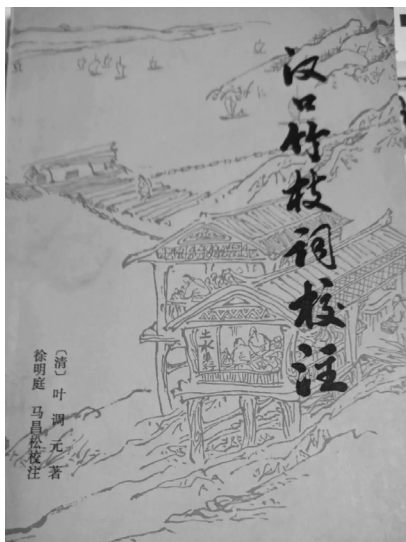 汉口竹枝词校注
〔清〕叶调元著
徐明庭 马昌松校注